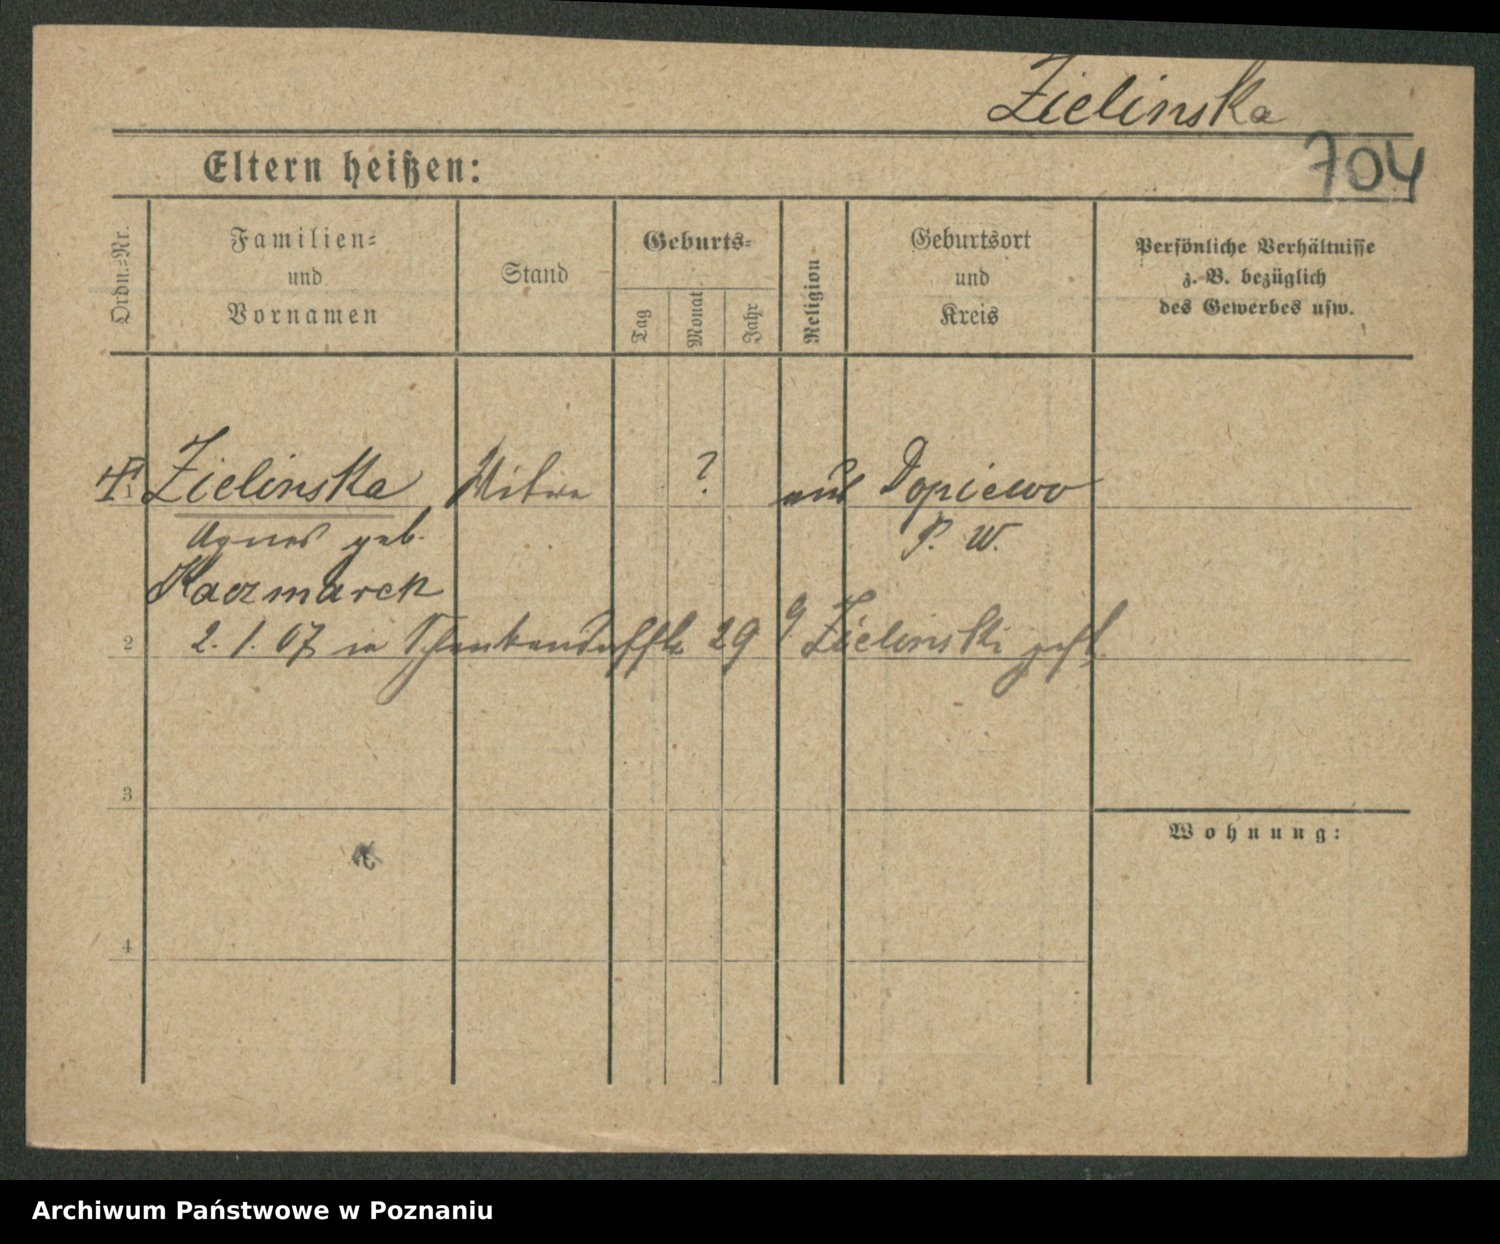 Zielinska
704
Eltern heißen:
Ordn.-Nr.
Familien-
und
Vornamen
Stand
Geburts-
Tag
Monat
Jahr
Religion
Geburtsort
und
Kreis
Persönliche Verhältnisse
z. B. bezüglich
des Gewerbes usw.
1 Zielinska Witwe ? aus Dopiewo
Agnes geb. P. W.
Kaczmarek
2 2. 1. 07 in 29 Zielinski
3
Wohnung:
4
Archiwum Państwowe w Poznaniu